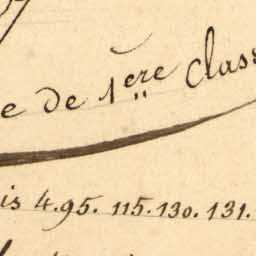 e de 1ère Class
is 4.95. 115.130. 131.